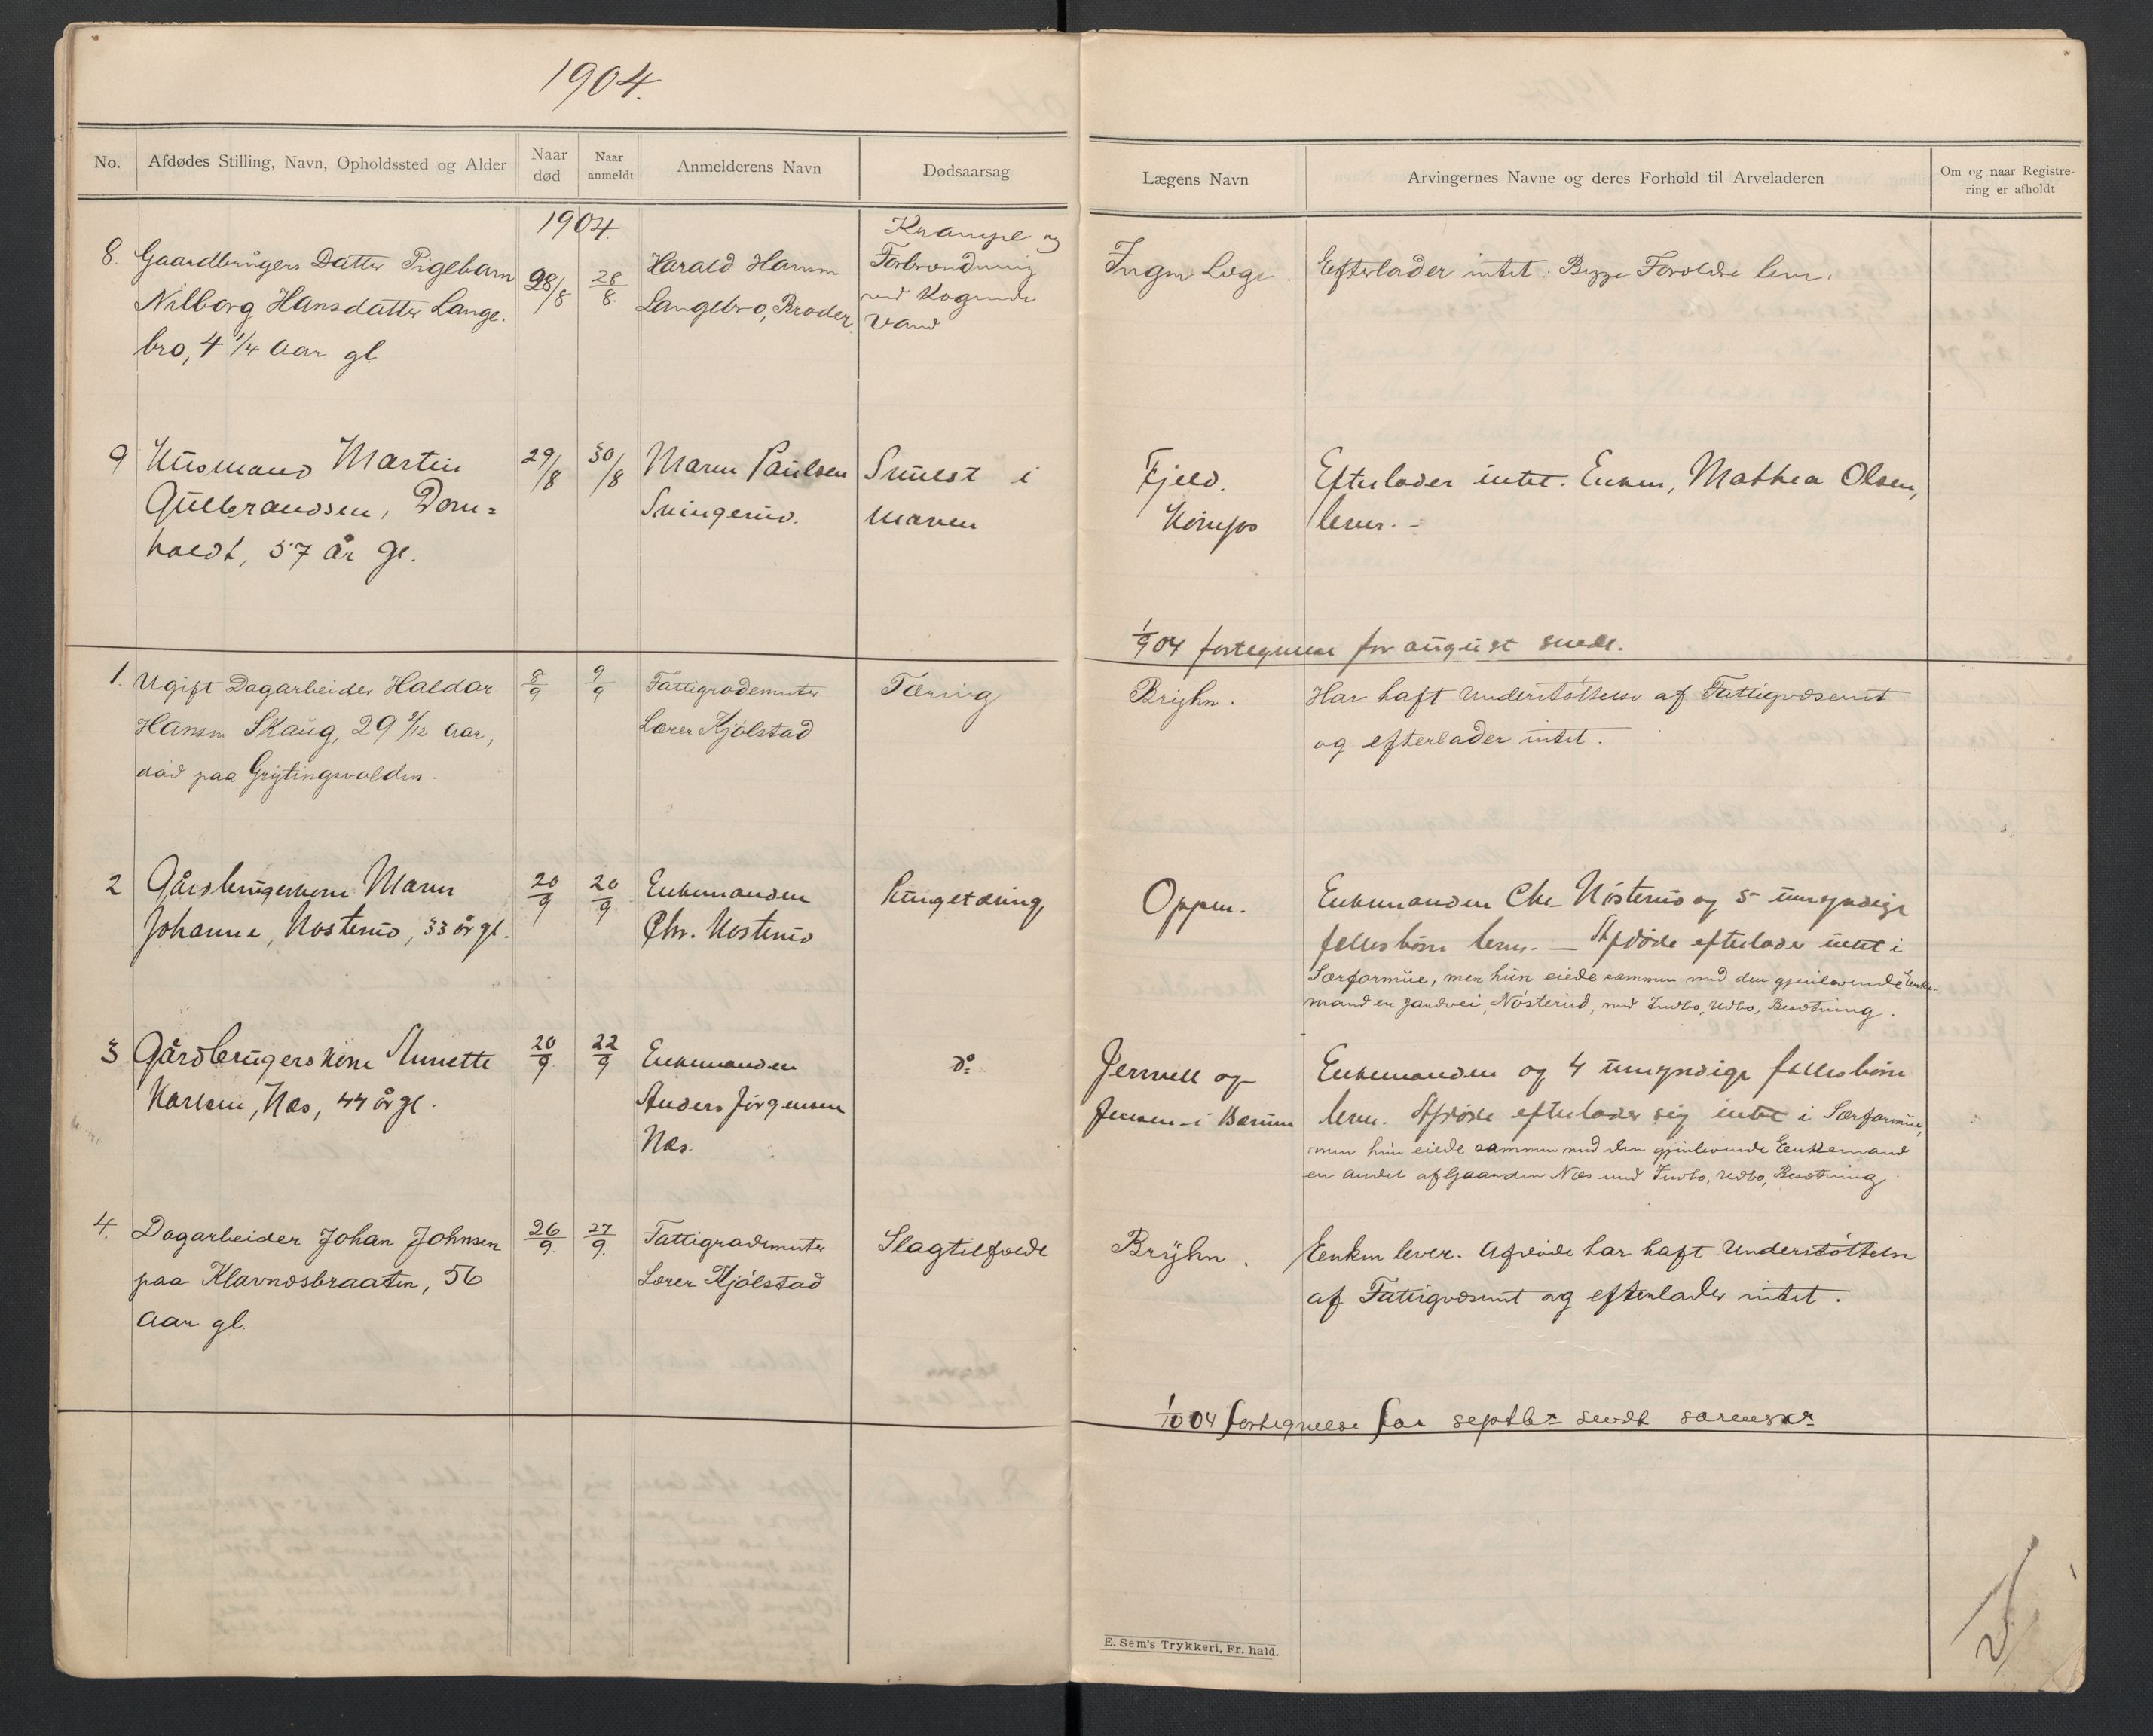 1904.
No. Afdødes Stilling, Navn, Opholdssted og Alder Naar død Naar anmeldt Anmelderens Navn Dødsaarsag
Lægens Navn Arvingernes Navne og deres Forhold til Arveladeren Om og naar Registrering er afholdt
1904.
8. Gaardbrugers Datter Pigebarn
Nilborg Hansdatter Lange-
bro, 4 1/4 Aar gl.
28/8 28/8.
Harald Hansen
Langebro, Broder.
Krampe og
Forbrænding
ved kogende
Vand
Ingen Læge.
Efterlader intet. Begge Forældre lever.
9 Husmand Martin
Gulbrandsen, Dom=
holdt, 57 år gl.
29/8 30/8
Maren Paulsen
Svingerud.
Svulst i
Maven
Fjeld.
Efterlader intet. Enken, Mathea Olsen,
lever. -
1/9 04 fortegnelse for august sendt.
1. Ugift Dagarbeider Haldor
Hansen Skaug, 29 9/12 Aar,
død paa Grytingsvolden.
8/9 9/9
Lærer Kjølstad
Tæring
Bryhn.
Har haft Understøttelse af Fattigvæsenet
og efterlader intet.
2 Gårdbrugerkone Maren
Johanne, Nøsterud, 33 år gl.
20/9 20/9
Enkemanden
Chr. Nøsterud
Lungetæring
Oppen.
Enkemanden Chr. Nøsterud og 5 umyndige
fellesbørn lever. — Afdøde efterlader intet i
Særformue, men hun eiede sammen med den gjenlevende Enke-
mand en Gaardvei, Nøsterud, med Indbo, Udbo, Besætning.
3 Gårdbrugerskone Annette
Karlsen, Næs, 44 år gl.
20/9 22/9
Enkemanden
Anders Jørgensen
Næs.
do
Jervell og
Jensen i Bærum
Enkemanden og 4 umyndige fellesbørn
lever. Afdøde efterlader sig intet i Særformue,
men hun eiede sammen med den gjenlevende Enkemand
en Andel af Gaarden Næs med Indbo, Udbo, Besætning.
4. Dagarbeider Johan Johnsen
paa Klavnesbraaten, 56
Aar gl.
26/9. 27/9.
Lærer Kjølstad
Slagtilfælde
Bryhn.
Enken lever. Afdøde har haft Understøttelse
af Fattigvæsenet og efterlader intet.
1/10 04 fortegnelse for septbr sendt sorenskr
E. Sem's Trykkeri, Fr. hald.